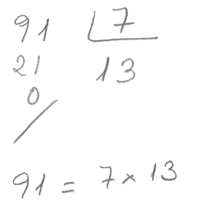 91 7
21 13
0
91 = 7 × 13